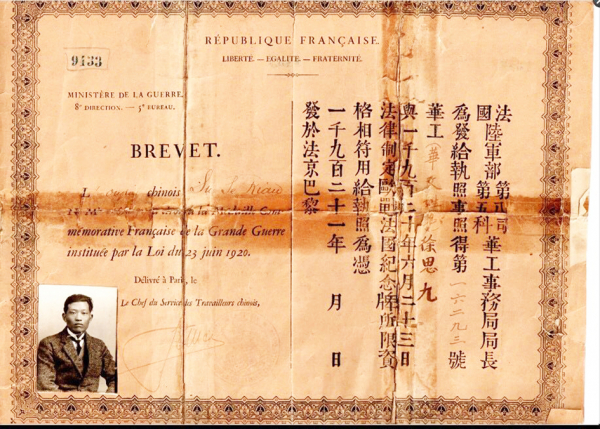 RÉPUBLIQUE FRANÇAISE.
LIBERTÉ. — EGALITÉ. — FRATERNITÉ.
MINISTÈRE DE LA GUERRE.
8e DIRECTION. — 5e BUREAU.
BREVET.
chinois
la Médaille Com-
mémorative Française de la Grande Guerre
instituée par la Loi du 23 juin 1920.
Délivré à Paris, le
Le Chef du Service des Travailleurs chinois,
法國陸軍部第八司第五科華工事務局局長
為發給執照事照得第一六二九三號
華工徐思九
與一千九百二十年六月二十三日
法律制定歐戰法國紀念牌所限資
格相符用給執照為憑
一千九百二十一年 月 日
發於法京巴黎